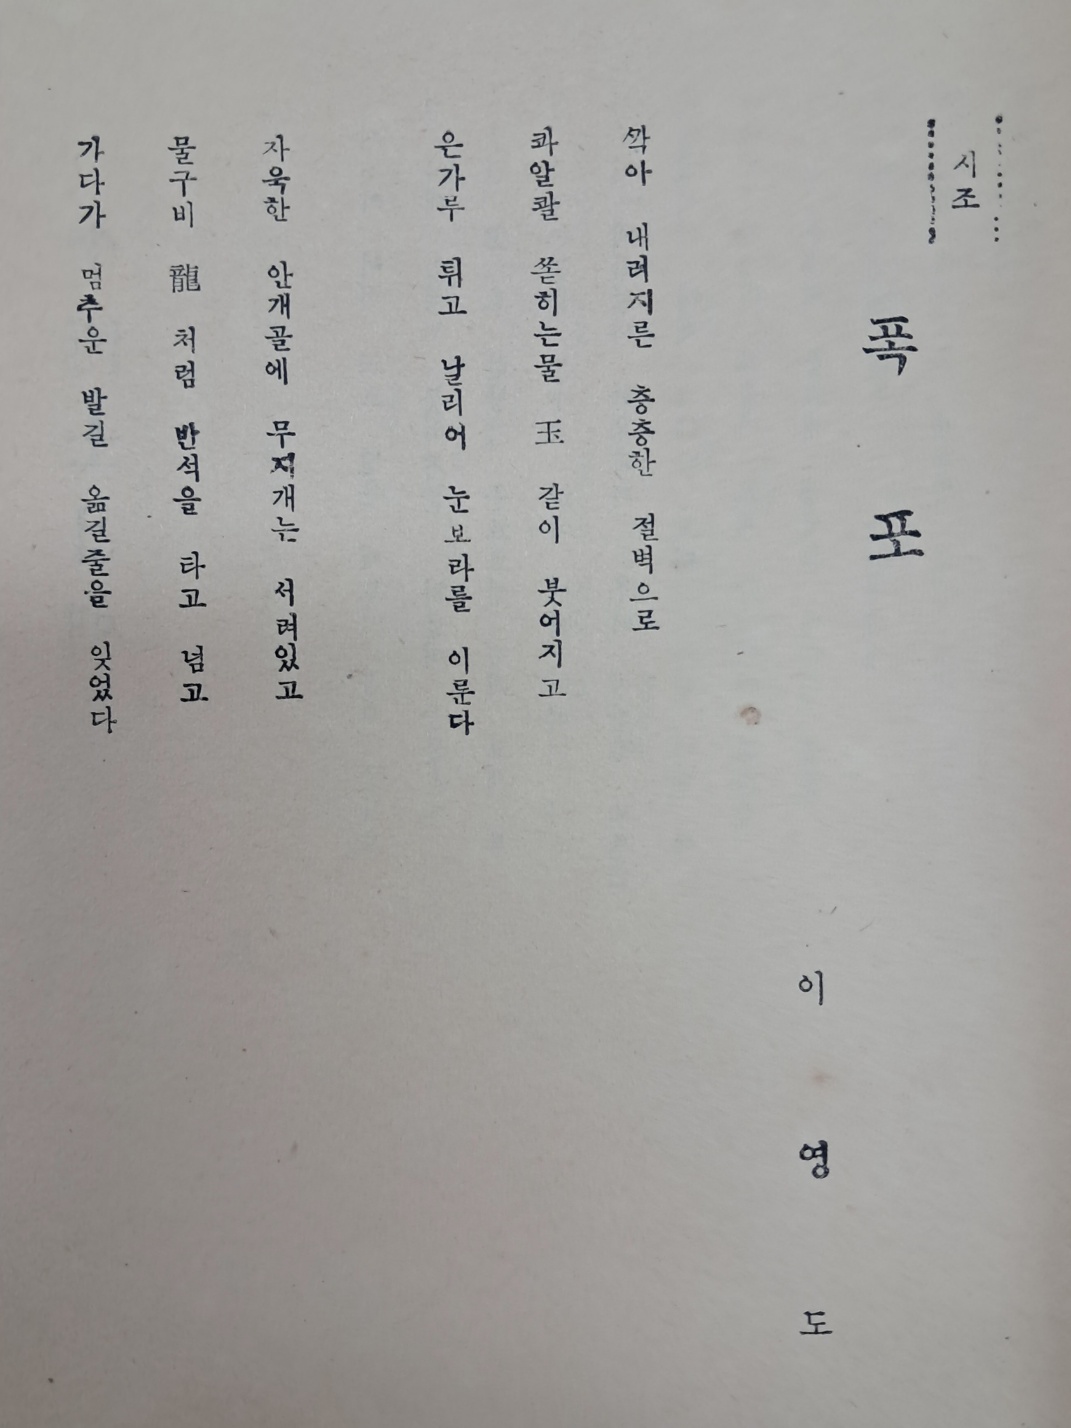 시조
폭포
이영도
깍아 내려지른 층층한 절벽으로
콰알콸 쏟히는물 玉 같이 붓어지고
은가루 튀고 날리어 눈보라를 이룬다
자욱한 안개골에 무지개는 서려있고
물구비 龍 처럼 반석을 타고 넘고
가다가 멈추운 발길 옮길줄을 잊었다